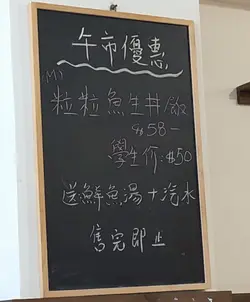 午市優惠
(M)
粒粒魚生丼/飯
$58-
學生价:$50
送:鮮魚湯+汽水
售完即止